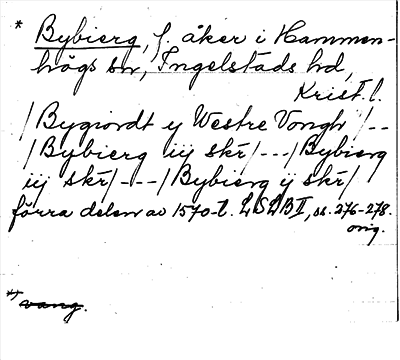 * Bybierg, f. åker i Hammen-
högs sn, Ingelstads hd,
Krist. l.
/Bygiordt y Westre Vongh/--
/Bybierg iij skr/---/Bybierg
iij skr/---/Bybierg ij skr/
förra delen av 1570-t. LSDB II, ss. 276-278.
orig.
*) vang.